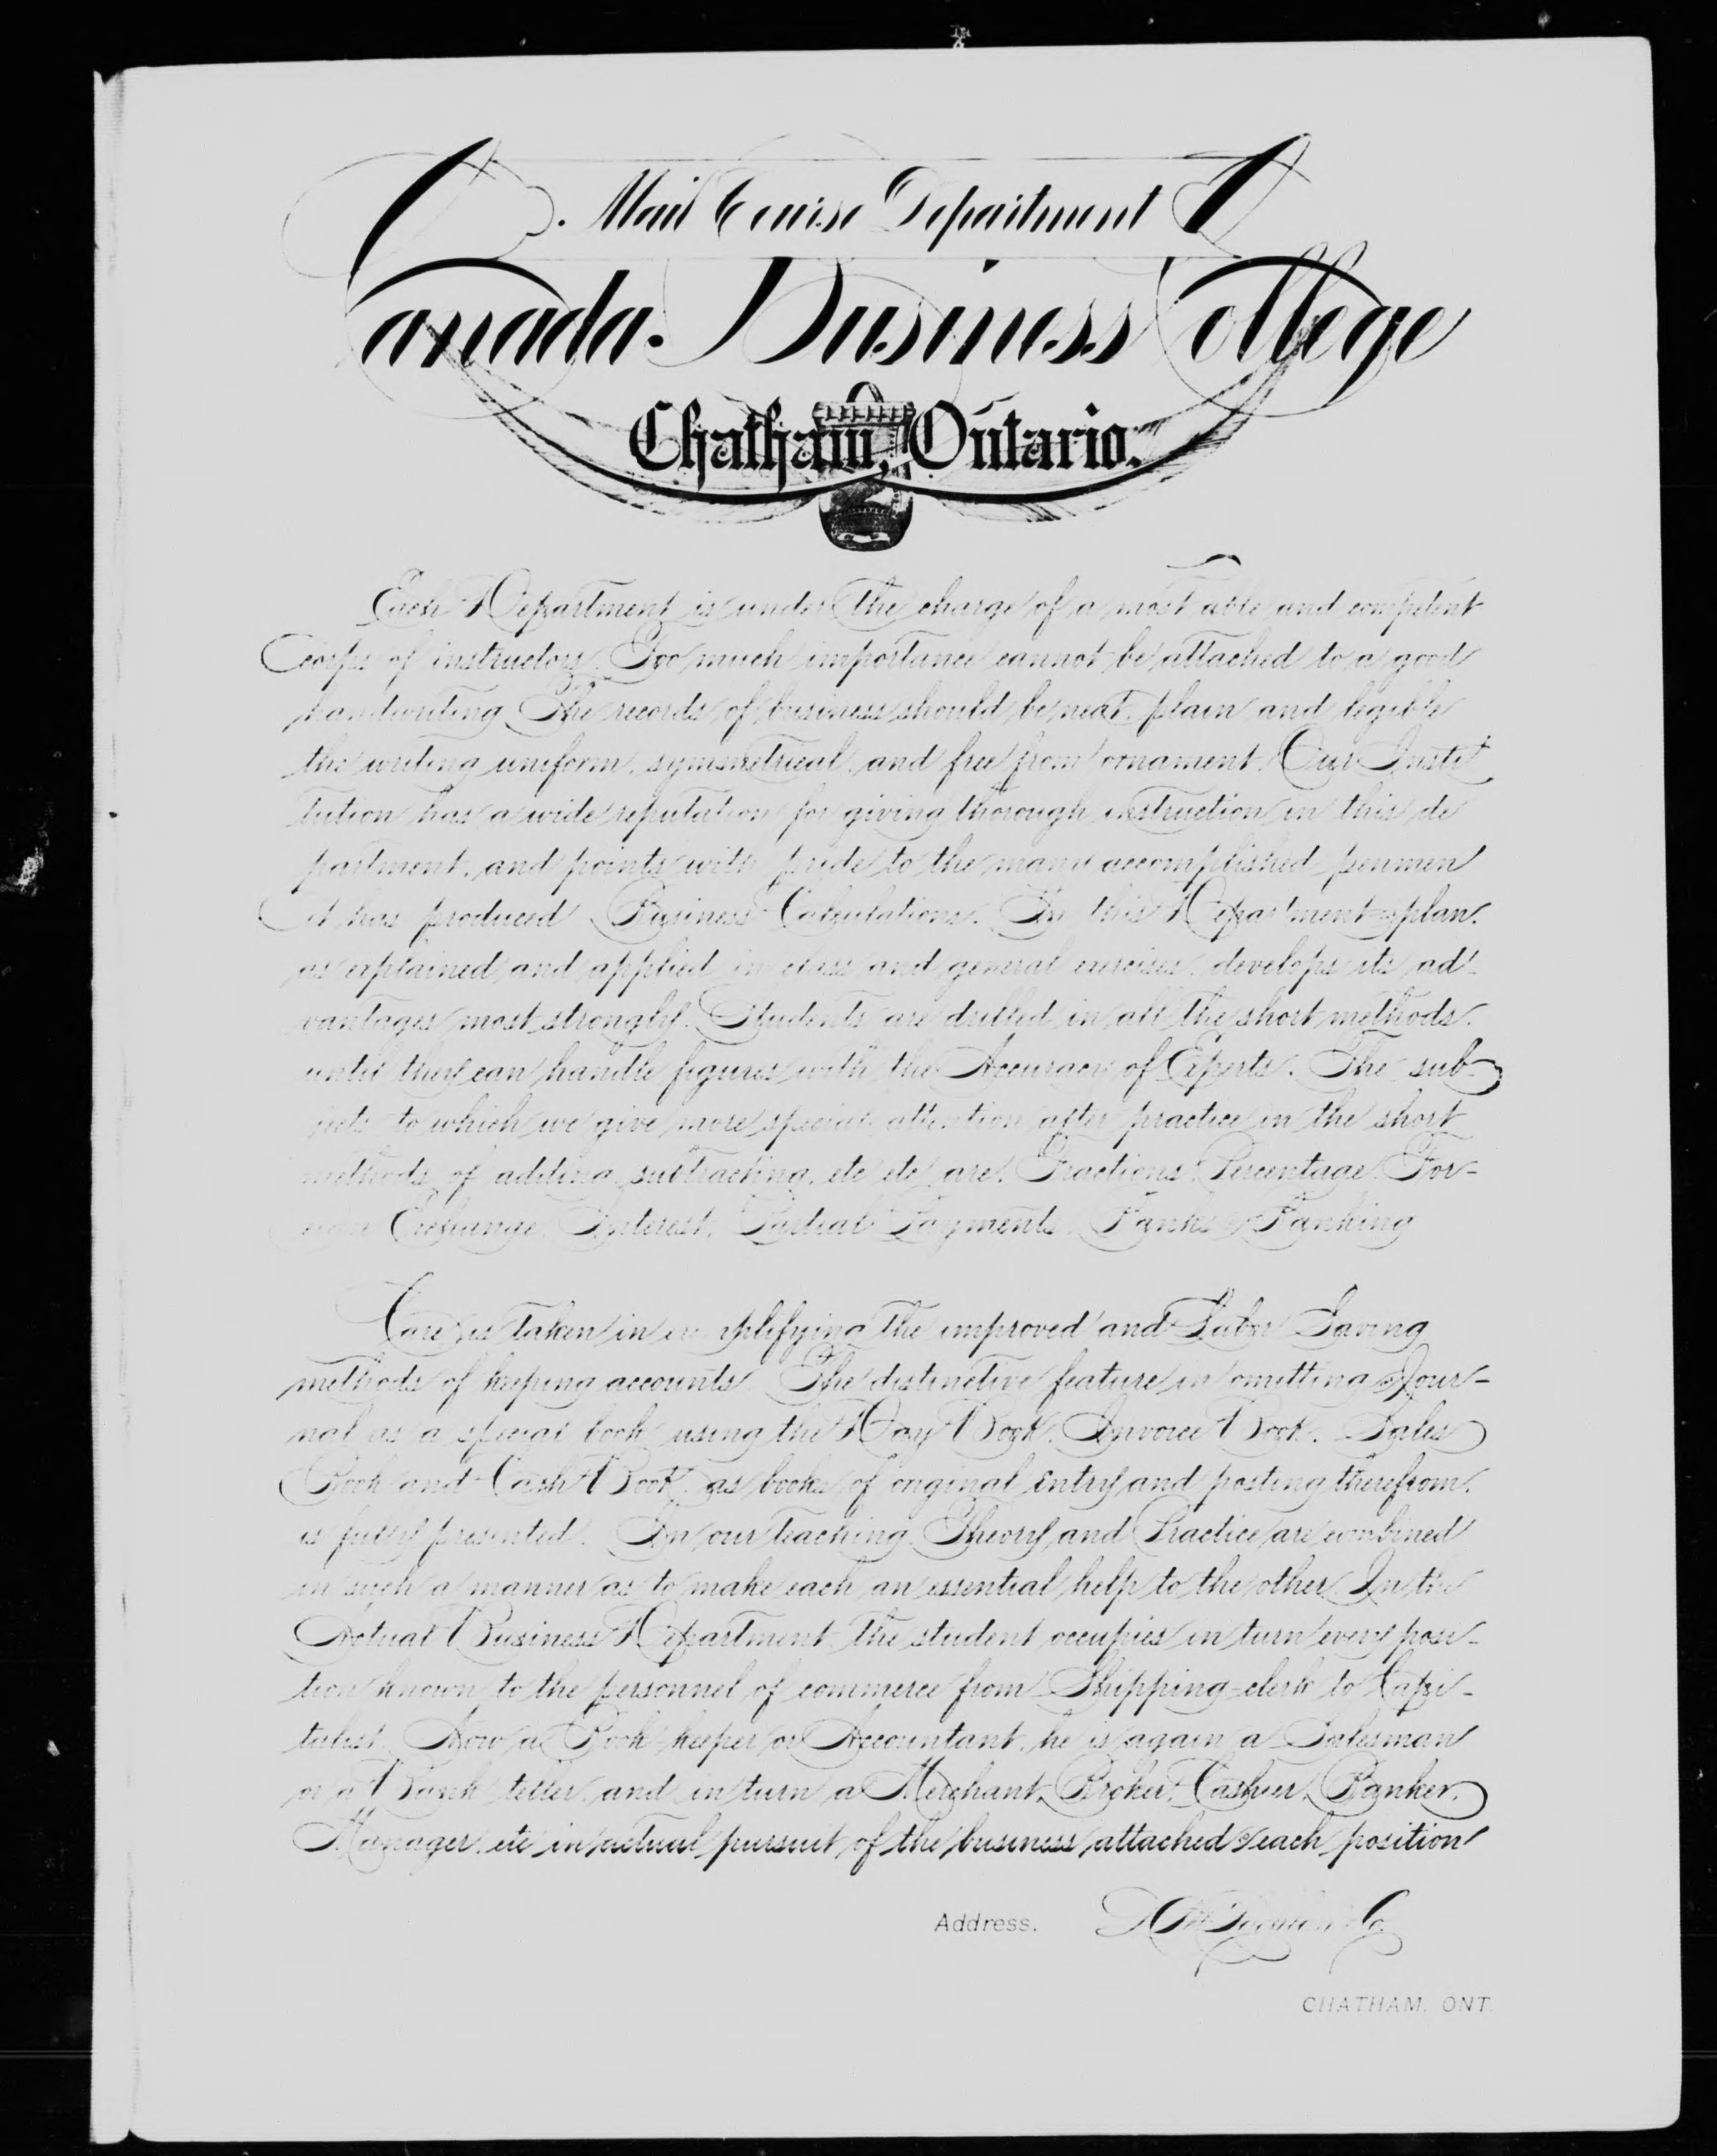 Mail Course Department
Canada Business College
Chatham, Ontario.
Each Department is under the charge of a most able and competent
corps of instructors. Too much importance cannot be attached to a good
handwriting The records of business should be neat, plain and legible
the writing uniform, symmetrical and free from ornament. Our Insti
tution has a wide reputation for giving thorough instruction in this de
partment, and points with pride to the many accomplished penmen
it has produced Business Calculations. In this Department plan.
as explained and applied in class and general exercises, develops its ad-
vantages most strongly. Students are drilled in all the short methods.
until they can handle figures with the Accuracy of Experts. The sub-
jects to which we give more special attention after practice in the short
methods of adding, subtracting, etc etc are. Fractions Percentage For-
eign Exchange Interest, Partial Payments Banks & Banking
Care is taken in exemplifying the improved and Labor Saving
methods of keeping accounts The distinctive feature in omitting Jour-
nal as a special book using the Day Book. Invoice Book. Sales
Book and Cash Book as books of original Entry and posting therefrom.
is fully presented. In our teaching Theory and Practice are combined
in such a manner as to make each an essential help to the other In the
Actual Business Department the student occupies in turn every posi-
tion known to the personnel of commerce from Shipping-clerk to Capi-
talist. Now a Book-keeper or Accountant, he is again a Salesman
or a Bank teller and in turn a Merchant, Broker, Cashier, Banker,
Manager, etc in actual pursuit of the business attached to each position
Address. Co.
CHATHAM, ONT.